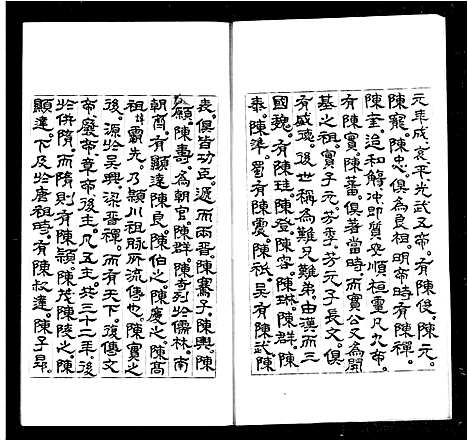 元年成哀平光武五帝。有陳俊。陳元。
陳寵。陳忠。俱為良相。明帝時有陳禪。
陳奎。追和解冲即質安順桓靈凡九帝。
有陳寔。陳蕃。俱著當時。而寔公又為開
基之祖。寔子元方。季方。元子長文。俱
有盛德。後世稱為難兄難弟。由漢而三
國魏。有陳珪。陳登。陳容。陳琳。陳群。陳
泰。陳準。蜀有陳震。陳祇。吳有陳武。陳
表。俱皆功臣。遞而兩晋。陳騫子。陳輿。陳
願。陳壽。為朝官。陳群。陳奇。列於儒林。南
朝齊。有顯達。陳良。陳伯之。陳慶之。陳高
祖霸先。乃潁川祖脈所流傳也。陳寔之
後。源於吳興。梁晋禪。而有天下。復傳文
帝。廢帝。章帝。後主。凡五主。共三十二年。後
於併隋。而隋則有陳潁。陳茂。陳陵之。陳
顯達。下及於唐祖時。有陳叔達。陳子昂。